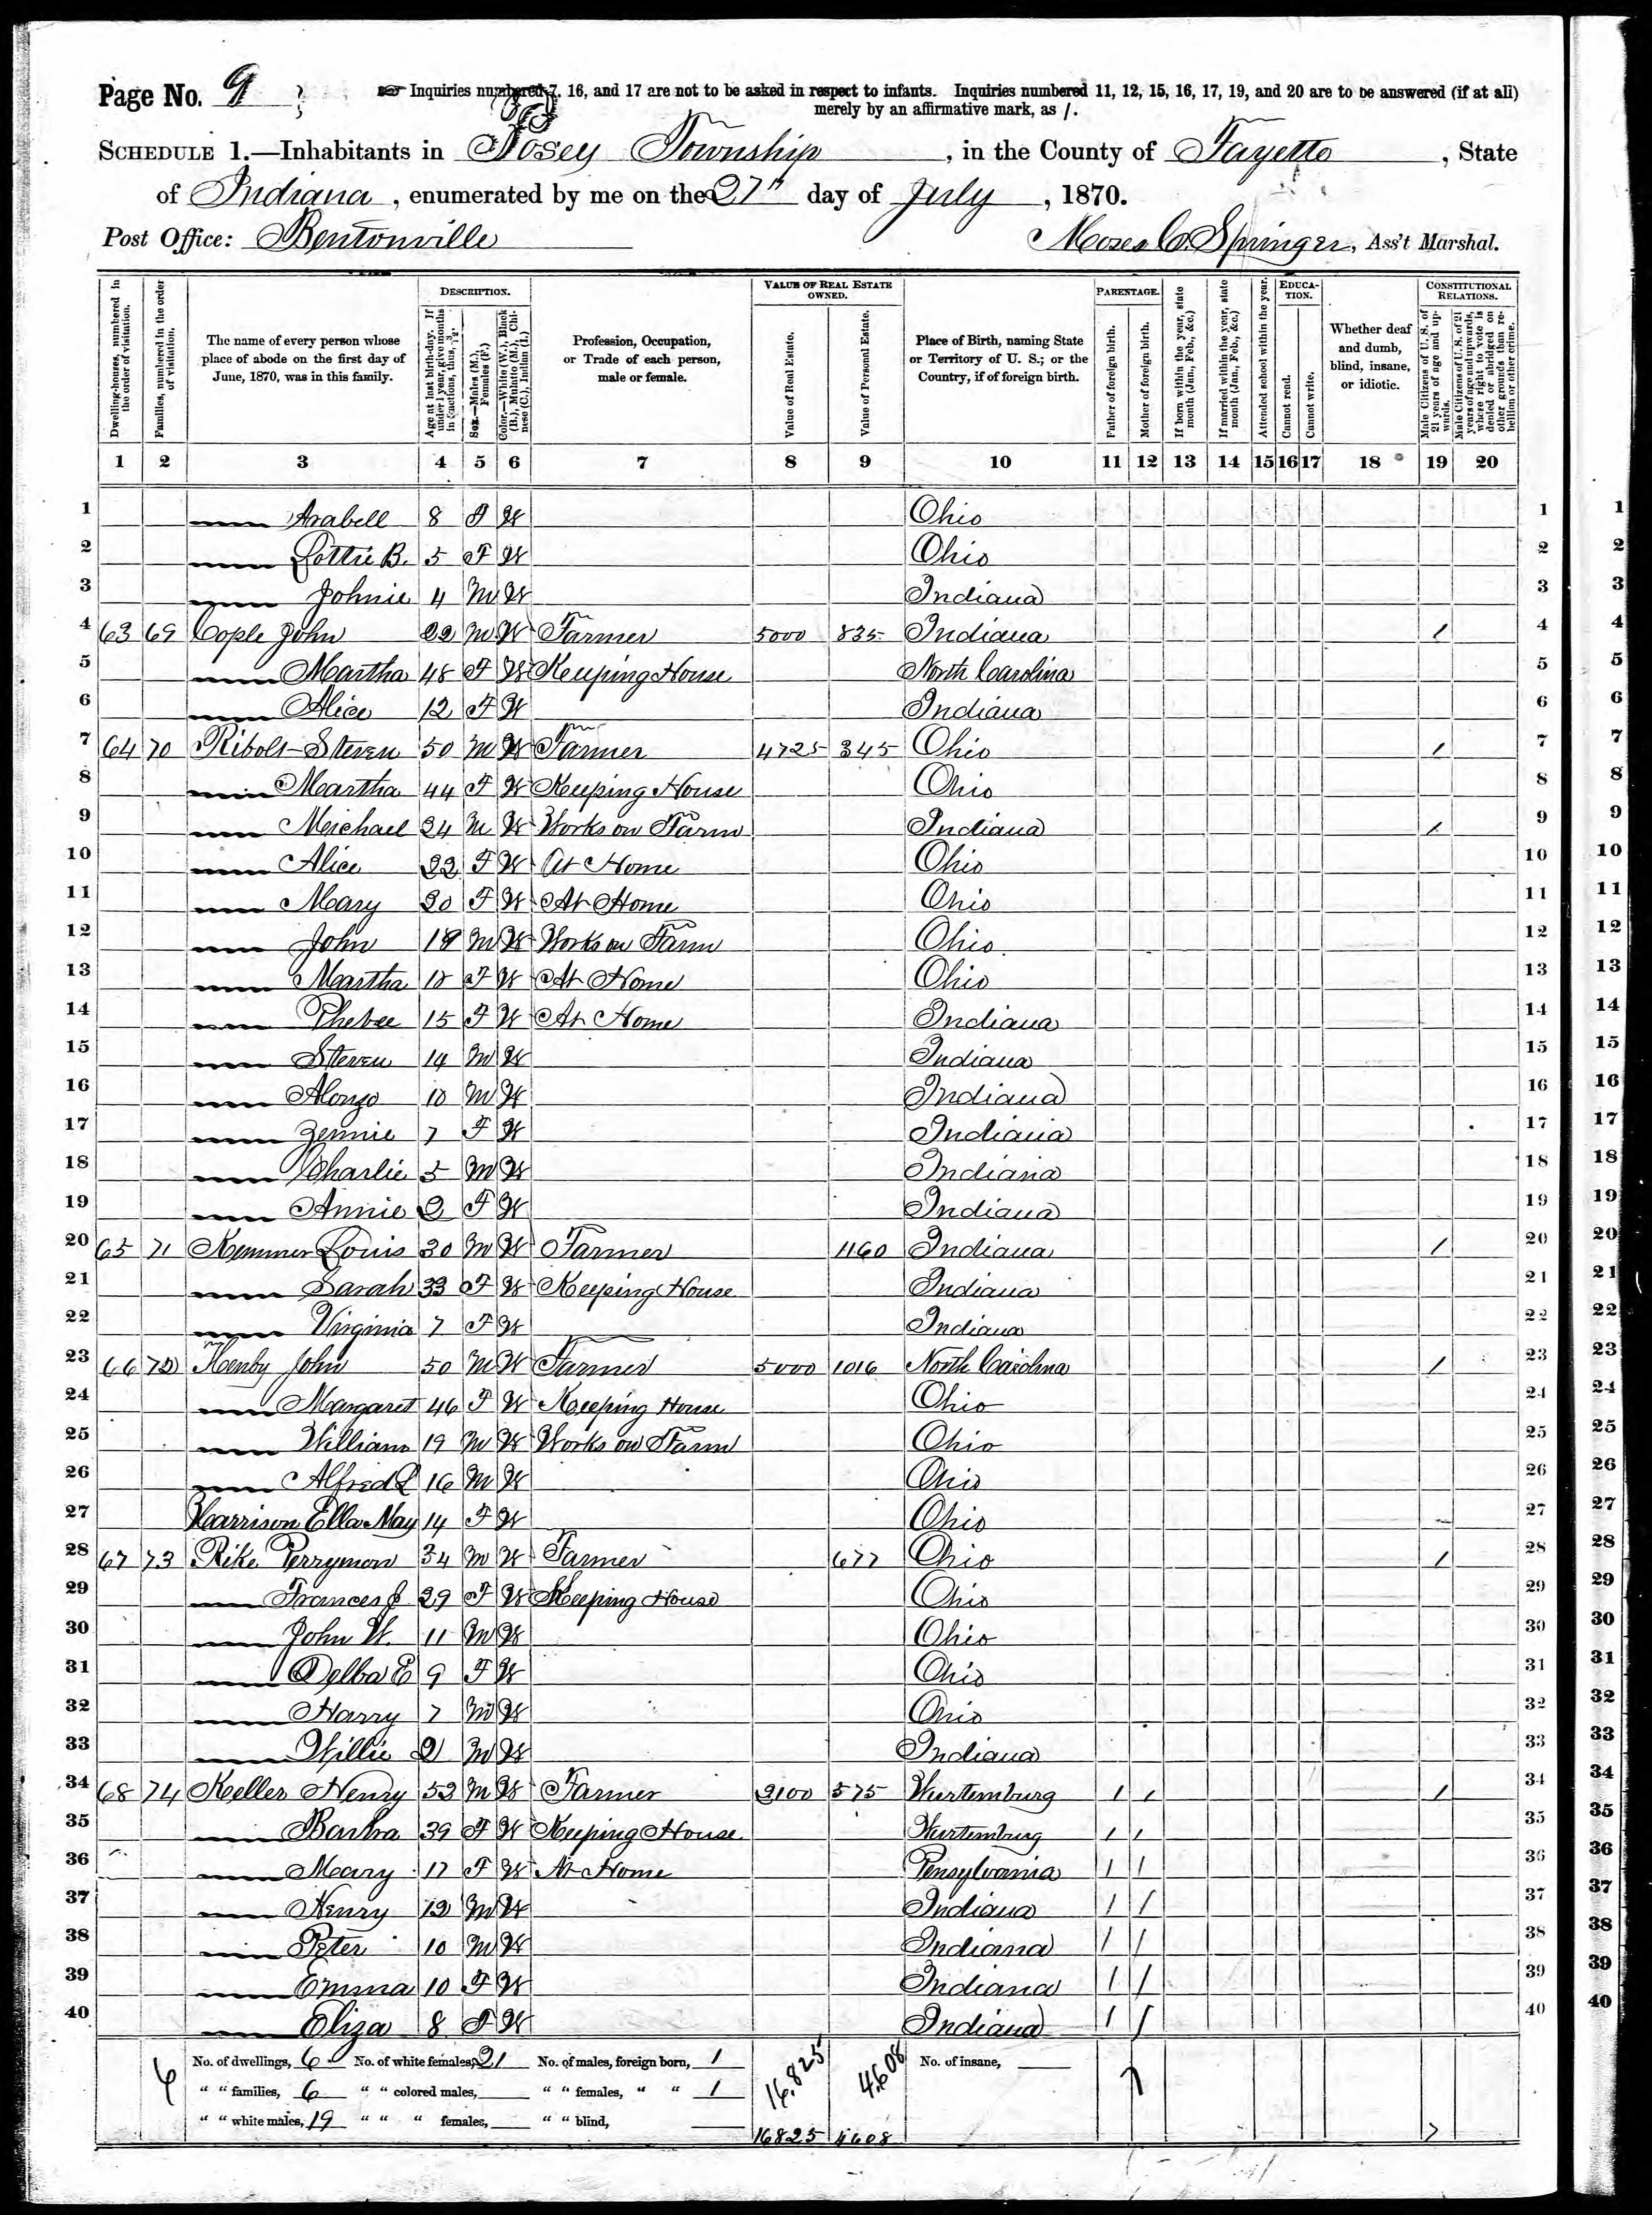 Page No. 9
Inquiries numbered 7, 16, and 17 are not to be asked in respect to infants. Inquiries numbered 11, 12, 15, 16, 17, 19, and 20 are to be answered (if at all)
merely by an affirmative mark, as /.
SCHEDULE 1.—Inhabitants in Posey Township, in the County of Fayette, State
of Indiana, enumerated by me on the 27th day of July, 1870.
Post Office: Bentonville
Moses C. Springer, Ass't Marshal.
Dwelling-houses, numbered in the order of visitation.
Families, numbered in the order of visitation.
The name of every person whose place of abode on the first day of June, 1870, was in this family.
DESCRIPTION.
Age at last birth-day. If under 1 year, give months in fractions, thus, 3/12.
Sex.—Males (M.), Females (F.)
Color.—White (W.), Black (B.), Mulatto (M.), Chinese (C.), Indian (I.)
Profession, Occupation, or Trade of each person, male or female.
VALUE OF REAL ESTATE OWNED.
Value of Real Estate.
Value of Personal Estate.
Place of Birth, naming State or Territory of U. S.; or the Country, if of foreign birth.
PARENTAGE.
Father of foreign birth.
Mother of foreign birth.
If born within the year, state month (Jan., Feb., &c.)
If married within the year, state month (Jan., Feb., &c.)
Attended school within the year.
EDUCATION.
Cannot read.
Cannot write.
Whether deaf and dumb, blind, insane, or idiotic.
CONSTITUTIONAL RELATIONS.
Male Citizens of U. S. of 21 years of age and upwards.
Male Citizens of U. S. of 21 years of age and upwards, where right to vote is denied or abridged on other grounds than rebellion or other crime.
1 2 3 4 5 6 7 8 9 10 11 12 13 14 15 16 17 18 19 20
1 Arabell 8 F W Ohio 1
2 Lottie B. 5 F W Ohio 2
3 Johnie 4 M W Indiana 3
4 63 69 Cople John 22 M W Farmer 5000 835 Indiana / 4
5 Martha 48 F W Keeping House North Carolina 5
6 Alice 12 F W Indiana 6
7 64 70 Ribolt Steven 50 M W Farmer 4725 345 Ohio / 7
8 Martha 44 F W Keeping House Ohio 8
9 Michael 24 M W Works on Farm Indiana / 9
10 Alice 22 F W At Home Ohio 10
11 Mary 20 F W At Home Ohio 11
12 John 18 M W Works on Farm Ohio 12
13 Martha F W At Home Ohio 13
14 Phebee 15 F W At Home Indiana 14
15 Steven 14 M W Indiana 15
16 Alonzo 10 M W Indiana 16
17 Jennie 7 F W Indiana 17
18 Charlie 5 M W Indiana 18
19 Annie 2 F W Indiana 19
20 65 71 Kemmer Louis 30 M W Farmer 1160 Indiana / 20
21 Sarah 33 F W Keeping House Indiana 21
22 Virginia 7 F W Indiana 22
23 66 72 Henby John 50 M W Farmer 5000 1016 North Carolina / 23
24 Margaret 46 F W Keeping House Ohio 24
25 William 19 M W Works on Farm Ohio 25
26 Alfred L 16 M W Ohio 26
27 Harrison Ella May 14 F W Ohio 27
28 67 73 Rike Perrymon 34 M W Farmer 677 Ohio / 28
29 Frances J 29 F W Keeping House Ohio 29
30 John W. 11 M W Ohio 30
31 Delba E 9 F W Ohio 31
32 Harry 7 M W Ohio 32
33 Willie 2 M W Indiana 33
34 68 74 Keller Henry 52 M W Farmer 2100 575 Wurtemburg / / / 34
35 Barbra 39 F W Keeping House Wurtemburg / / 35
36 Mary 17 F W At Home Pensylvania / / 36
37 Henry 12 M W Indiana / / 37
38 Peter 10 M W Indiana / / 38
39 Emma 10 F W Indiana / / 39
40 Eliza 8 F W Indiana / / 40
6 No. of dwellings, 6 No. of white females, 21 No. of males, foreign born, 1 16,825 4,608 No. of insane, 7
" " families, 6 " " colored males, " " females, " " 1
" " white males, 19 " " " females, " " blind, 16825 4608 7